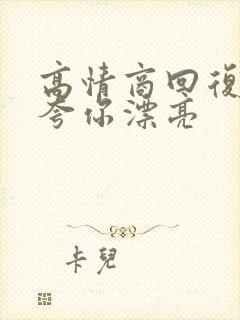 高情商回復
夸你漂亮
卡兒